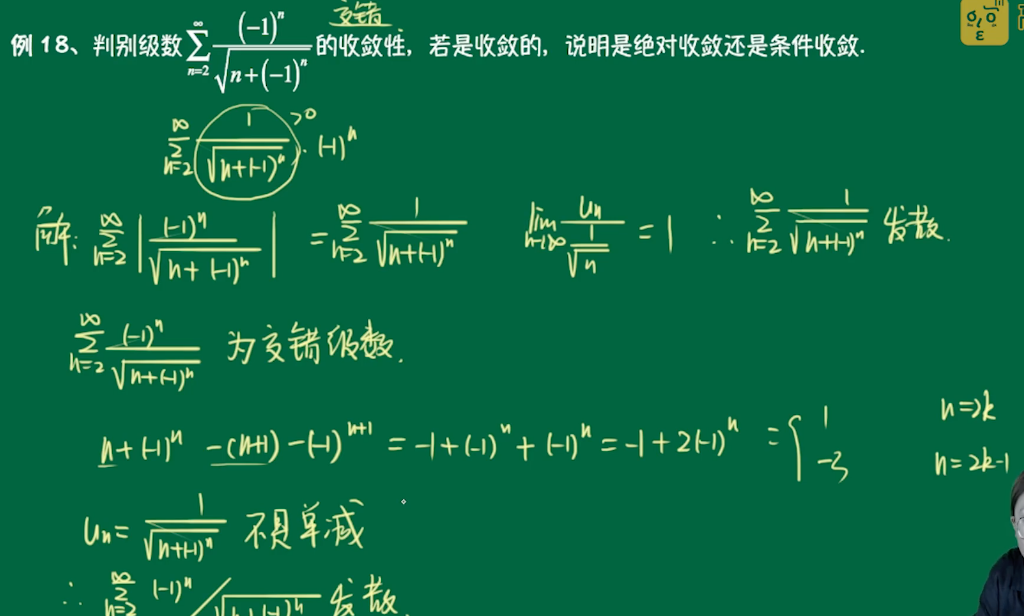 交错
例 18、判别级数 \sum_{n=2}^{\infty} \frac{(-1)^n}{\sqrt{n+(-1)^n}} 的收敛性，若是收敛的，说明是绝对收敛还是条件收敛.
\sum_{n=2}^{\infty} \frac{1}{\sqrt{n+(-1)^n}} >0 · (-1)^n
解: \sum_{n=2}^{\infty} \left| \frac{(-1)^n}{\sqrt{n+(-1)^n}} \right| = \sum_{n=2}^{\infty} \frac{1}{\sqrt{n+(-1)^n}} \lim_{n→∞} \frac{u_n}{\frac{1}{\sqrt{n}}} = 1 ∴ \sum_{n=2}^{\infty} \frac{1}{\sqrt{n+(-1)^n}} 发散.
\sum_{n=2}^{\infty} \frac{(-1)^n}{\sqrt{n+(-1)^n}} 为交错级数.
n+(-1)^n -(n+1) -(-1)^{n+1} = -1+(-1)^n+(-1)^n = -1+2(-1)^n = { 1 n=2k
-3 n=2k-1
u_n= \frac{1}{\sqrt{n+(-1)^n}} 不具单减
∴ \sum_{n=2}^{\infty} (-1)^n / \sqrt{n+(-1)^n} 发散.